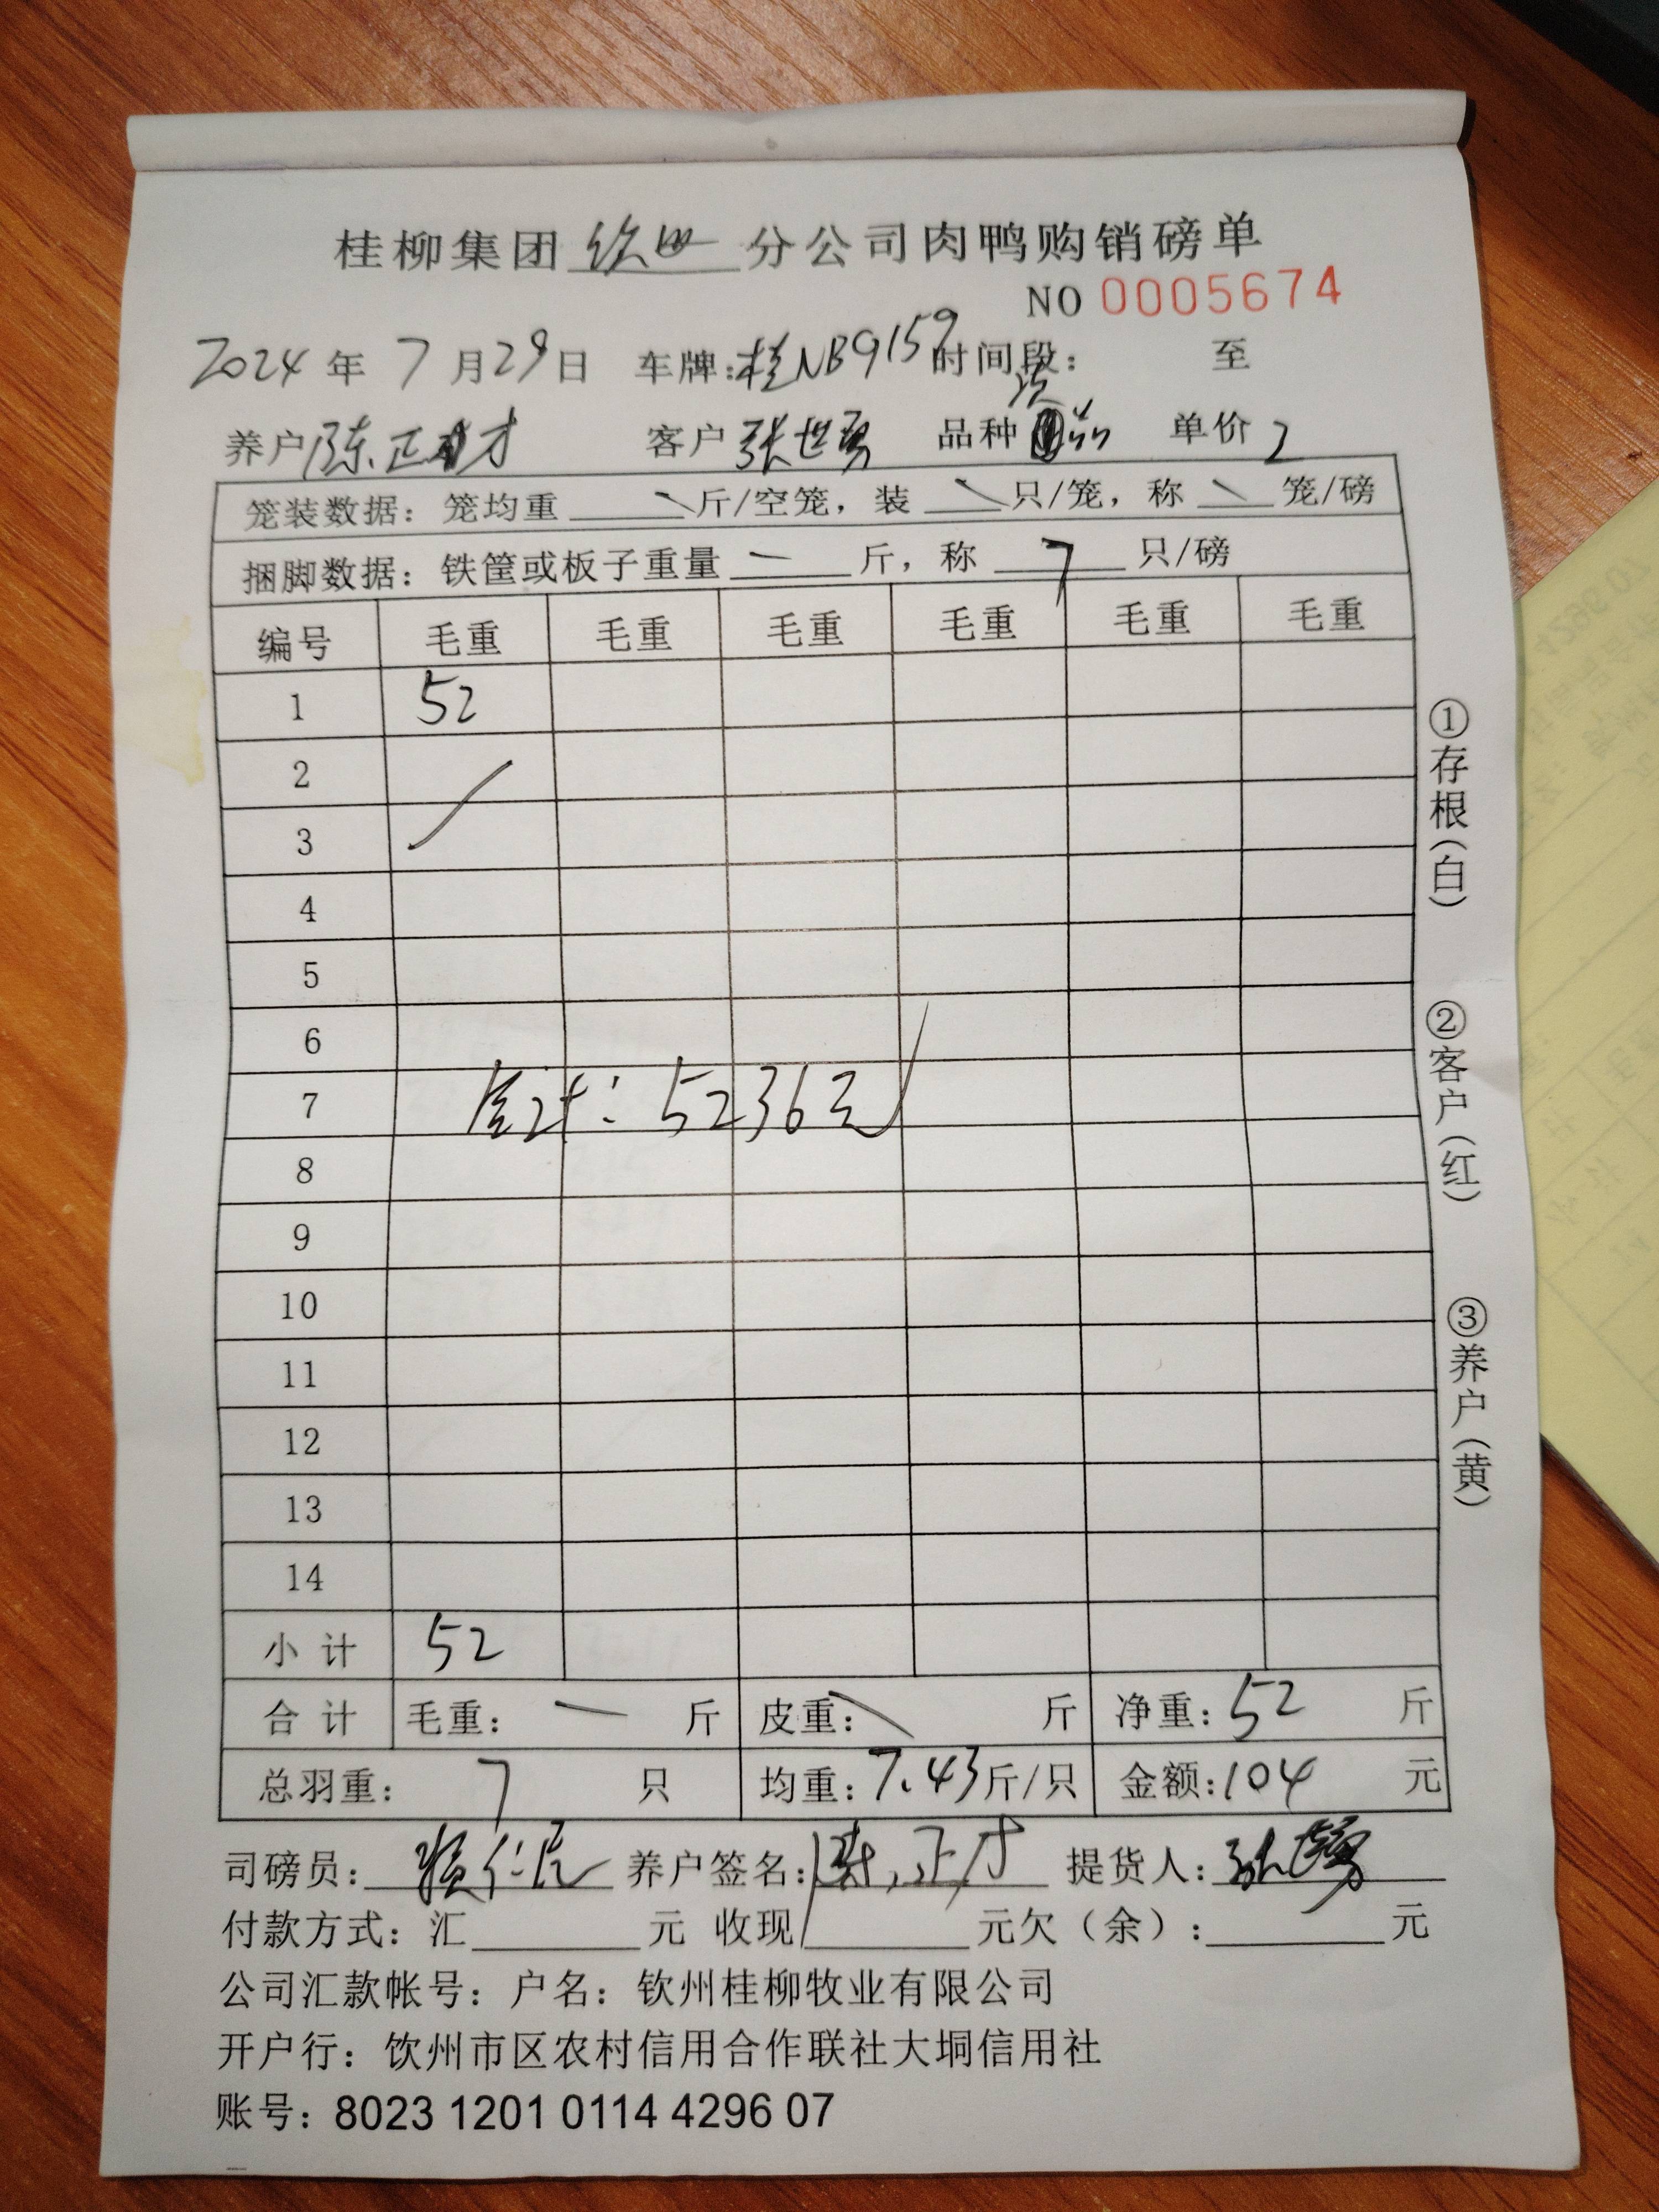 桂柳集团钦四分公司肉鸭购销磅单
NO 0005674
2024年7月29日 车牌:桂NB9159时间段: 至
养户陈正才 客户张世勇 品种 次品 单价2
笼装数据:笼均重 \ 斤/空笼,装 \ 只/笼,称 \ 笼/磅
捆脚数据:铁筐或板子重量 — 斤,称 7 只/磅
编号 毛重 毛重 毛重 毛重 毛重 毛重
1 52
2
3
4
5
6
7 合计:5236元
8
9
10
11
12
13
14
小计 52
合计 毛重: — 斤 皮重:\ 斤 净重:52 斤
总羽重: 7 只 均重:7.43斤/只 金额:104 元
司磅员: 养户签名:陈正才 提货人:张世勇
付款方式:汇 元 收现 元欠(余): 元
公司汇款帐号:户名:钦州桂柳牧业有限公司
开户行:饮州市区农村信用合作联社大垌信用社
账号:8023 1201 0114 4296 07
①存根(白)
②客户(红)
③养户(黄)